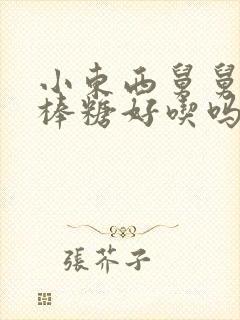 小东西舅舅
棒糖好喫吗
張芥子